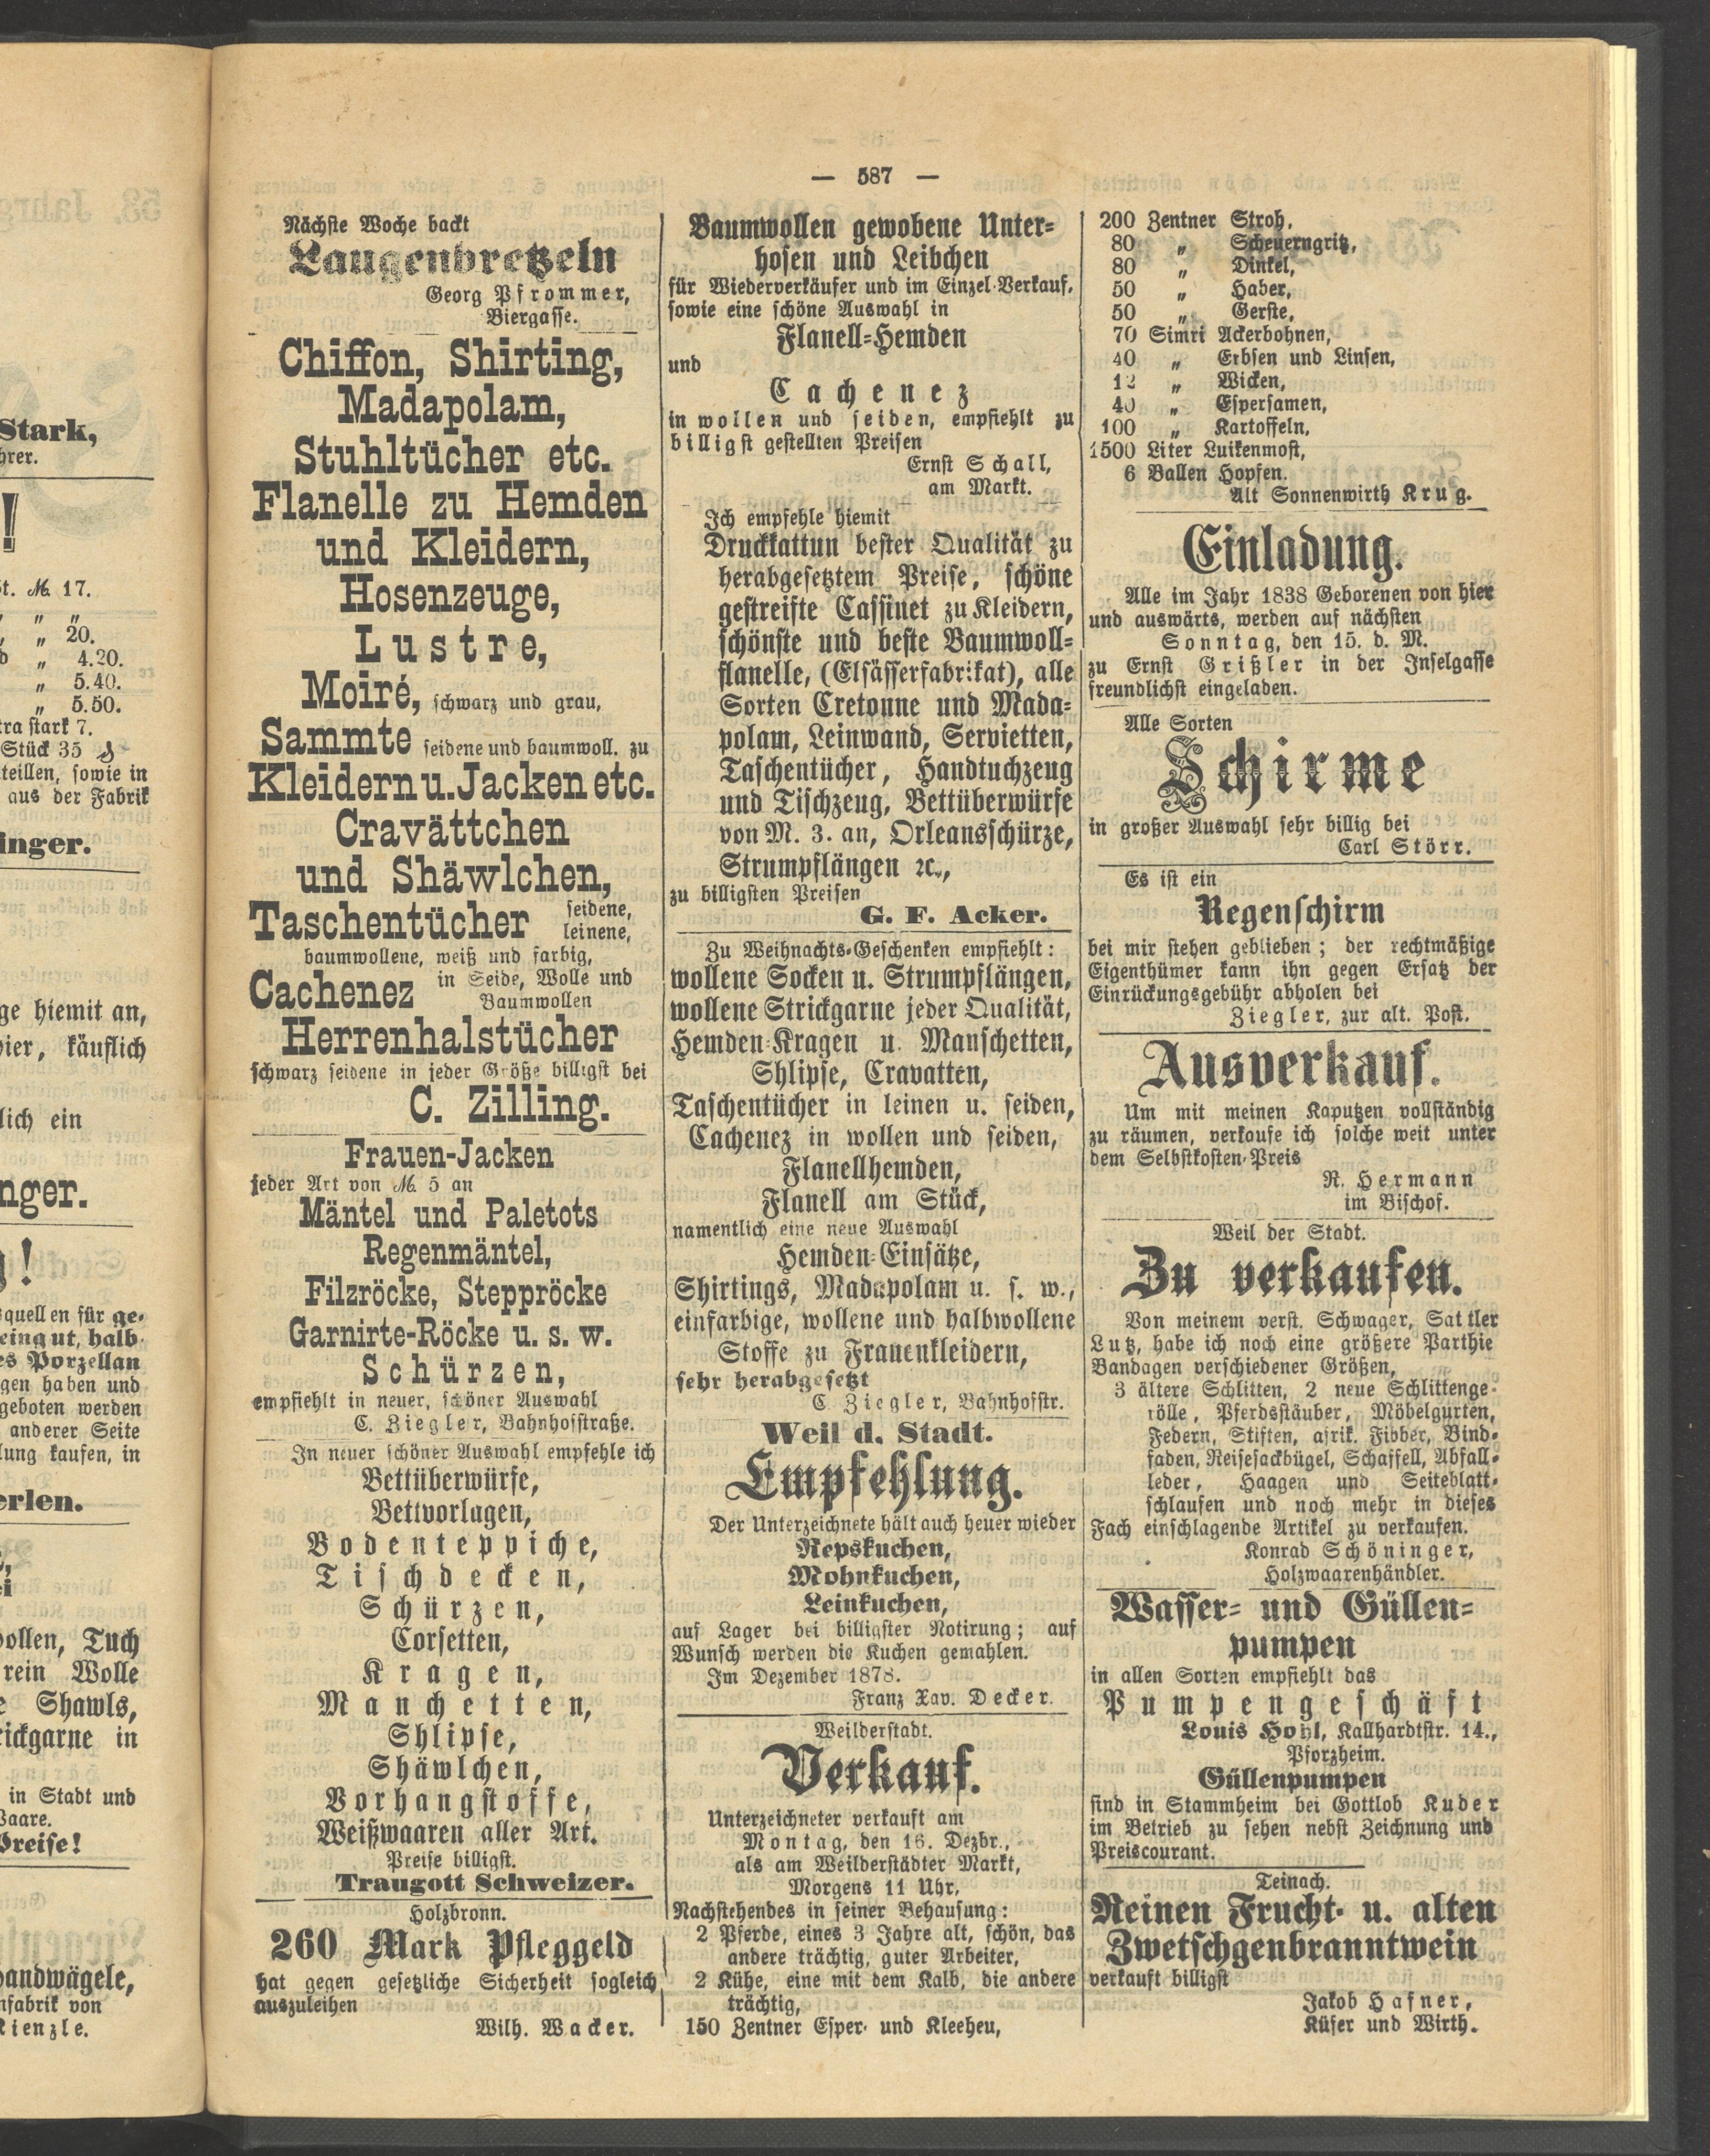 — 587 —
Nächste Woche backt
Laugenbretzeln
Georg Pfrommer,
Biergasse.
Chiffon, Shirting,
Madapolam,
Stuhltücher etc.
Flanelle zu Hemden
und Kleidern,
Hosenzeuge,
Lustre,
Moiré, schwarz und grau,
Sammte seidene und baumwoll. zu
Kleidern u. Jacken etc.
Cravättchen
und Shäwlchen,
Taschentücher seidene, leinene,
baumwollene, weiß und farbig,
Cachenez in Seide, Wolle und Baumwollen
Herrenhalstücher
schwarz seidene in jeder Größe billigst bei
C. Zilling.
Frauen-Jacken
jeder Art von M. 5 an
Mäntel und Paletots
Regenmäntel,
Filzröcke, Stepprröcke
Garnirte-Röcke u. s. w.
Schürzen,
empfiehlt in neuer, schöner Auswahl
C. Ziegler, Bahnhofstraße.
In neuer schöner Auswahl empfehle ich
Bettüberwürfe,
Bettvorlagen,
Bodenteppiche,
Tischdecken,
Schürzen,
Corsetten,
Kragen,
Manchetten,
Shlipse,
Shäwlchen,
Vorhangstoffe,
Weißwaaren aller Art.
Preise billigst.
Traugott Schweizer.
Holzbronn.
260 Mark Pfleggeld
hat gegen gesetzliche Sicherheit sogleich
auszuleihen
Wilh. Wacker.
Baumwollen gewobene Unter-
hosen und Leibchen
für Wiederverkäufer und im Einzel-Verkauf,
sowie eine schöne Auswahl in
Flanell-Hemden
und
Cachenez
in wollen und seiden, empfiehlt zu
billigst gestellten Preisen
Ernst Schall,
am Markt.
Ich empfehle hiemit
Druckkattun bester Qualität zu
herabgesetztem Preise, schöne
gestreifte Cassinet zu Kleidern,
schönste und beste Baumwoll-
flanelle, (Elsässerfabrikat), alle
Sorten Cretonne und Mada-
polam, Leinwand, Servietten,
Taschentücher, Handtuchzeug
und Tischzeug, Bettüberwürfe
von M. 3. an, Orleansschürze,
Strumpflängen ꝛc.,
zu billigsten Preisen
G. F. Acker.
Zu Weihnachts-Geschenken empfiehlt:
wollene Socken u. Strumpflängen,
wollene Strickgarne jeder Qualität,
Hemden-Kragen u. Manschetten,
Shlipse, Cravatten,
Taschentücher in leinen u. seiden,
Cachenez in wollen und seiden,
Flanellhemden,
Flanell am Stück,
namentlich eine neue Auswahl
Hemden-Einsätze,
Shirtings, Madapolam u. s. w.,
einfarbige, wollene und halbwollene
Stoffe zu Frauenkleidern,
sehr herabgesetzt
C. Ziegler, Bahnhofstr.
Weil d. Stadt.
Empfehlung.
Der Unterzeichnete hält auch heuer wieder
Repskuchen,
Mohnkuchen,
Leinkuchen,
auf Lager bei billigster Notirung; auf
Wunsch werden die Kuchen gemahlen.
Im Dezember 1878.
Franz Xav. Decker.
Weilderstadt.
Verkauf.
Unterzeichneter verkauft am
Montag, den 16. Dezbr.,
als am Weilderstädter Markt,
Morgens 11 Uhr,
Nachstehendes in seiner Behausung:
2 Pferde, eines 3 Jahre alt, schön, das
andere trächtig, guter Arbeiter,
2 Kühe, eine mit dem Kalb, die andere
trächtig,
150 Zentner Esper- und Kleeheu,
200 Zentner Stroh,
80 „ Scheuerngritz,
80 „ Dinkel,
50 „ Haber,
50 „ Gerste,
70 Simri Ackerbohnen,
40 „ Erbsen und Linsen,
12 „ Wicken,
40 „ Espersamen,
100 „ Kartoffeln,
1500 Liter Luikenmost,
6 Ballen Hopfen.
Alt Sonnenwirth Krug.
Einladung.
Alle im Jahr 1838 Geborenen von hier
und auswärts, werden auf nächsten
Sonntag, den 15. d. M.
zu Ernst Grißler in der Inselgasse
freundlichst eingeladen.
Alle Sorten
Schirme
in großer Auswahl sehr billig bei
Carl Störr.
Es ist ein
Regenschirm
bei mir stehen geblieben; der rechtmäßige
Eigenthümer kann ihn gegen Ersatz der
Einrückungsgebühr abholen bei
Ziegler, zur alt. Post.
Ausverkauf.
Um mit meinen Kaputzen vollständig
zu räumen, verkaufe ich solche weit unter
dem Selbstkosten-Preis
R. Hermann
im Bischof.
Weil der Stadt.
Zu verkaufen.
Von meinem verst. Schwager, Sattler
Lutz, habe ich noch eine größere Parthie
Bandagen verschiedener Größen,
3 ältere Schlitten, 2 neue Schlittenge-
rölle, Pferdsstäuber, Möbelgurten,
Federn, Stiften, afrik. Fibber, Bind-
faden, Reisesackbügel, Schaffell, Abfall-
leder, Haagen und Seiteblatt-
schlaufen und noch mehr in dieses
Fach einschlagende Artikel zu verkaufen.
Konrad Schöninger,
Holzwaarenhändler.
Wasser- und Güllen-
pumpen
in allen Sorten empfiehlt das
Pumpengeschäft
Louis Hohl, Kallhardtstr. 14.,
Pforzheim.
Güllenpumpen
sind in Stammheim bei Gottlob Kuder
im Betrieb zu sehen nebst Zeichnung und
Preiscourant.
Teinach.
Reinen Frucht- u. alten
Zwetschgenbranntwein
verkauft billigst
Jakob Hafner,
Küfer und Wirth.